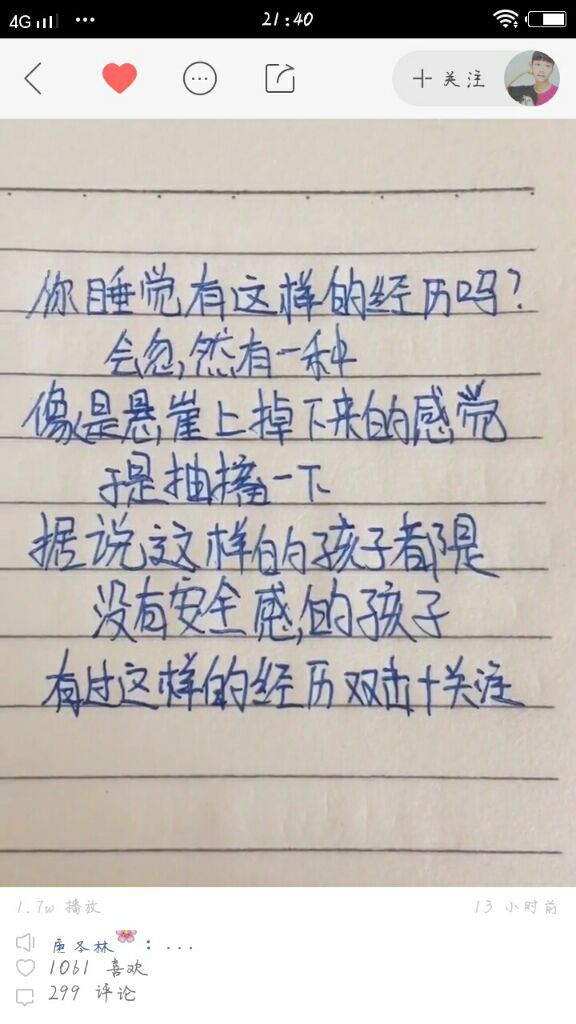 4G 21:40
+ 关注
你睡觉有这样的经历吗?
会忽,然有一种
像是悬崖上掉下来的感觉
于是抽搐一下
据说这样的孩子都是
没有安全感,的孩子
有过这样的经历双击+关注
1.7w 播放 13 小时前
: ...
1061 喜欢
299 评论